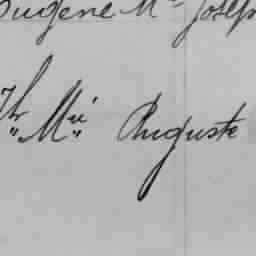 Eugène Mie Joseph
Th "Mie" Auguste